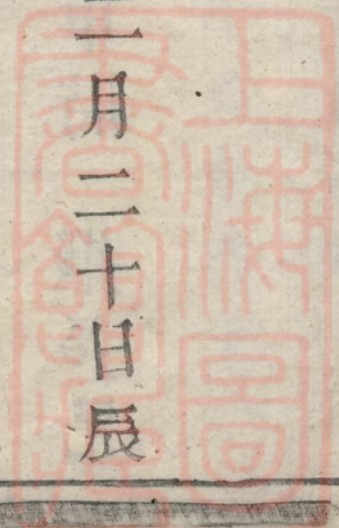 月二十日辰
上海圖
書館藏